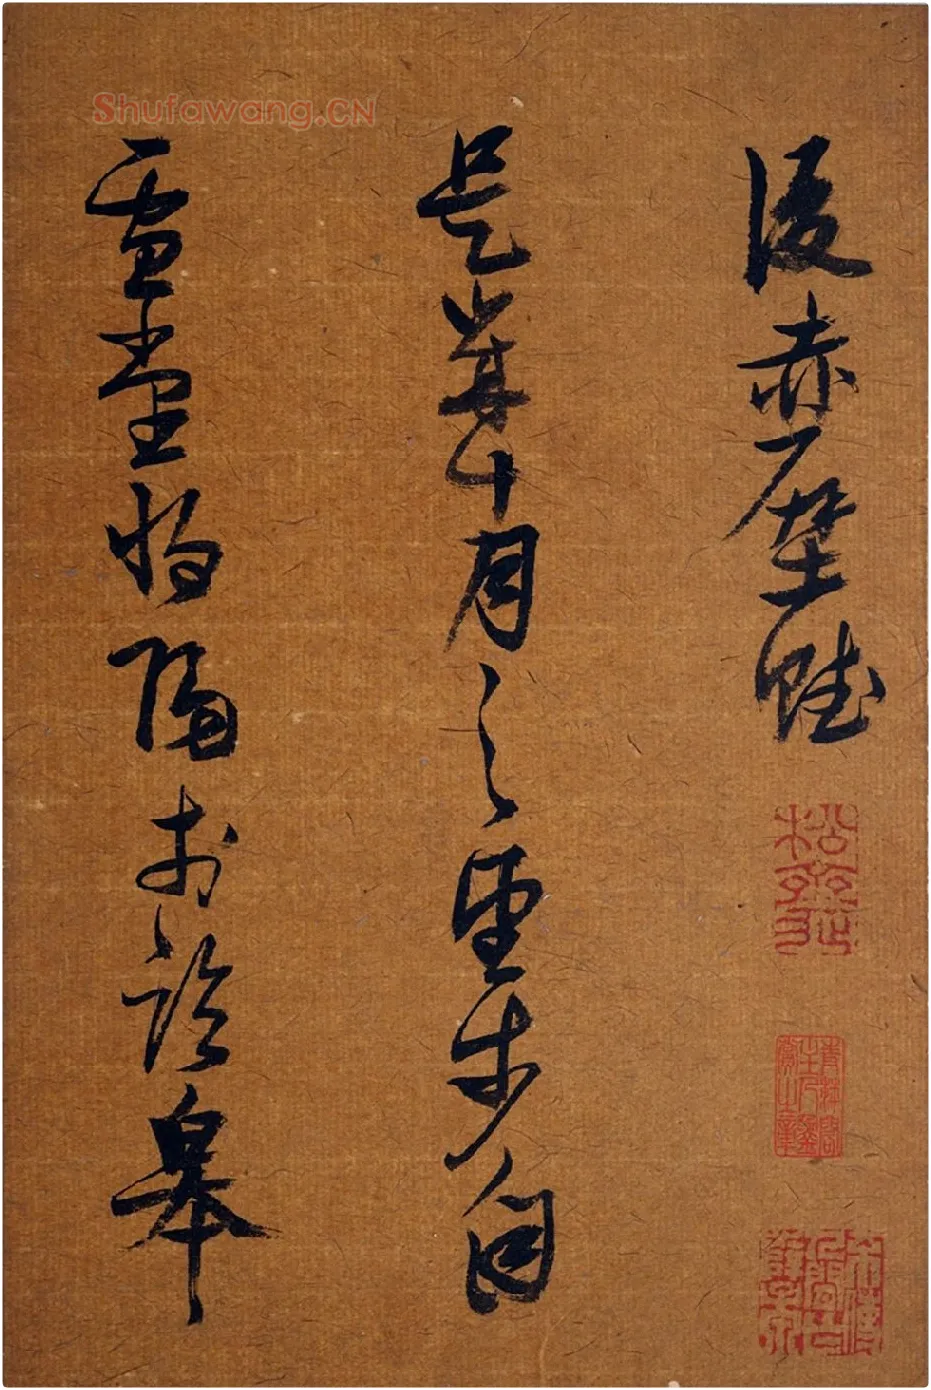 後赤壁賦
是歲十月之望步自
雪堂將歸於臨皋
Shufawang.CN